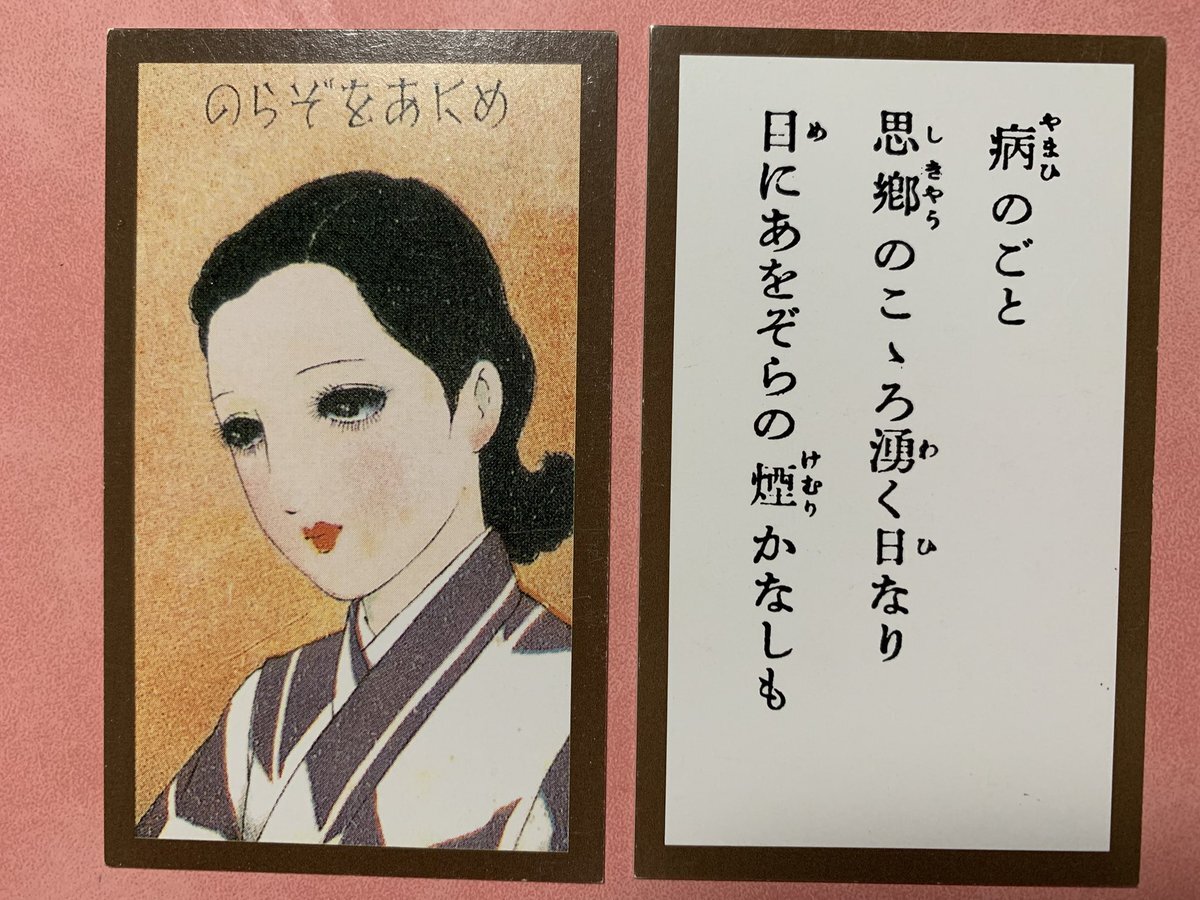 めにあをぞらの
やまひ
病のごと
しきやう わ ひ
思鄕のこゝろ湧く日なり
め けむり
目にあをぞらの煙かなしも